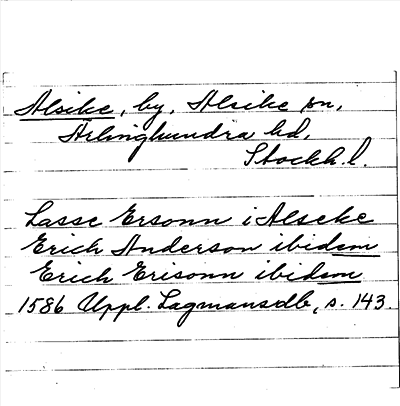 Alsike, by, Alsike sn,
Ärlinghundra hd,
Stockh. l.
Lasse Ersonn i Alseke
Erich Anderson ibidem
Erich Erisonn ibidem
1586 Uppl. Lagmansdb, s. 143.